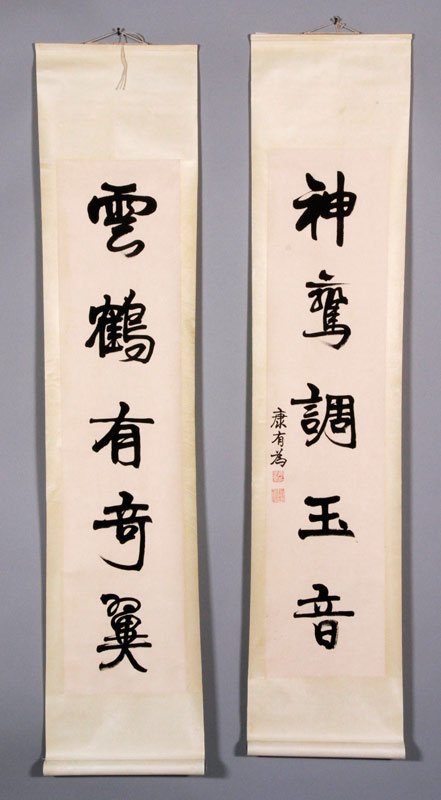 雲鶴有奇翼
神鸞調玉音
康有為